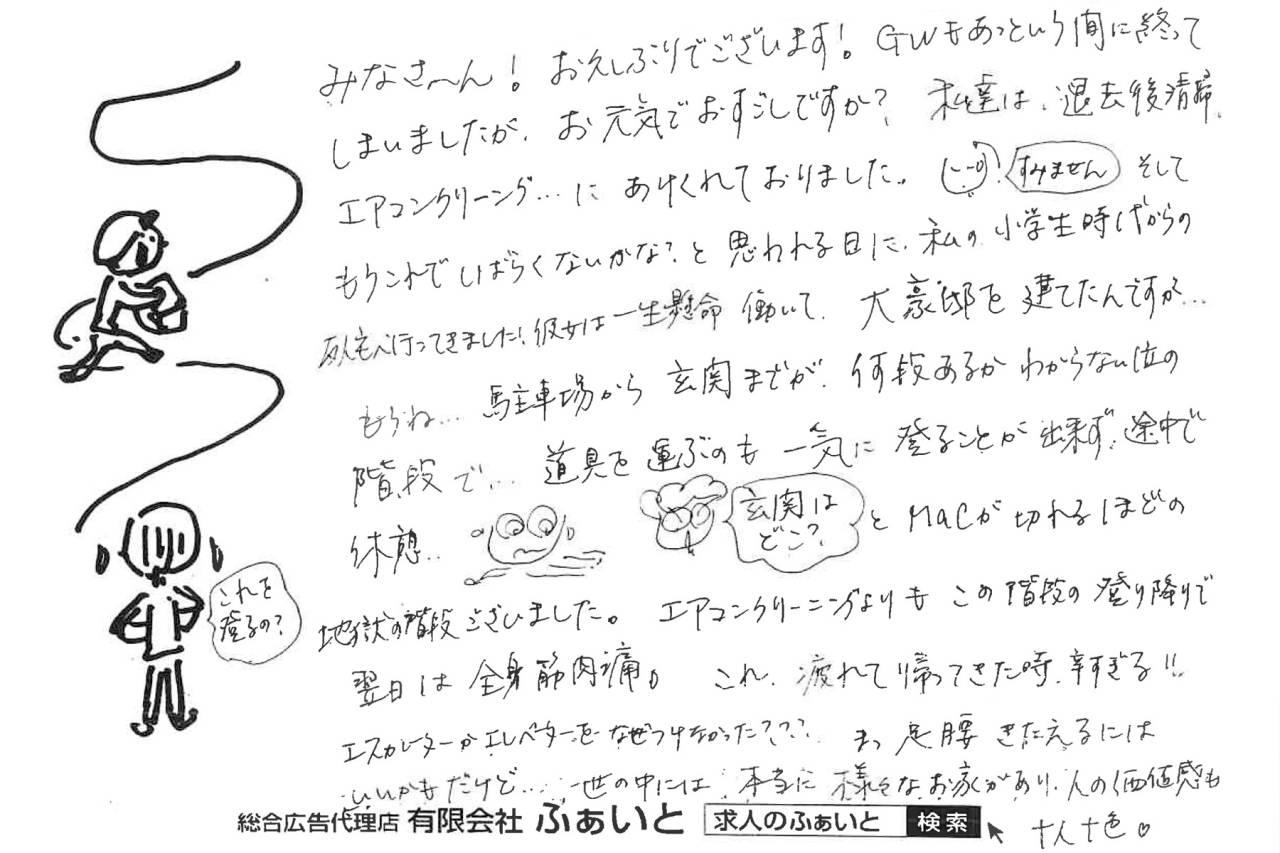 みなさ〜ん！ お久しぶりでございます！ GWもあっという間に終って
しまいましたが、お元気でおすごしですか？ 私達は、退去後清掃
エアコンクリーング…に あけくれておりました。 すみません そして
もうこれでしばらくないかな？と 思われる日に、私の 小学生時代からの
友人宅へ行ってきました！彼女は一生懸命 働いて、大豪邸を建てたんですが…
もうね… 駐車場から 玄関までが、何段あるか わからない位の
階段で… 道具を運ぶのも 一気に 登ることが 出来ず、途中で
休憩… 玄関はどこ？ と MaCが 切れるほどの
地獄の階段ございました。 エアコンクリーニングよりも この階段の 登り降りで
翌日は 全身筋肉痛。 これ、疲れて帰ってきた時、辛すぎる!!
エスカレーターかエレベーターをなぜつけなかった？？？ まっ 足腰 きたえるには
いいかもだけど… 世の中には 本当に 様々なお家があり、人の価値感も
十人十色♡
これを
登るの？
総合広告代理店 有限会社 ふぁいと 求人のふぁいと 検索